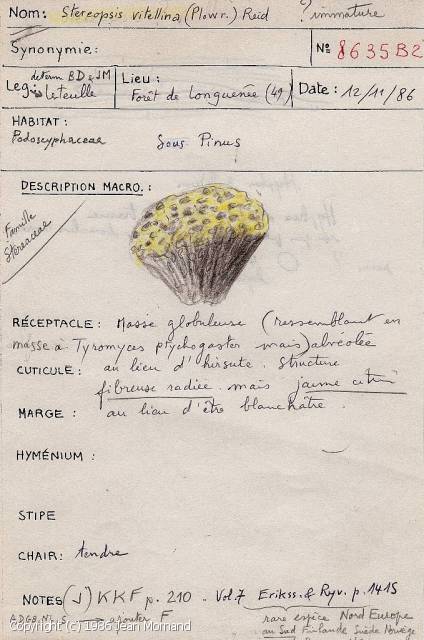 Nom: Stereopsis vitellina (Plowr.) Reid ? immature
Synonymie: Nº 8635B2
Leg: determ BD & JM Leteulle Lieu: Forêt de Longuenée (49) Date: 12/11/86
HABITAT:
Podoscyphaceae Sous Pinus
DESCRIPTION MACRO.:
Famille
Stereaceae
RÉCEPTACLE: Masse globuleuse (ressemblant en
masse à Tyromyces ptychogaster mais) alvéolée
CUTICULE: au lieu d'hirsute. Structure
fibreuse radiée mais jaune citrin
MARGE: au lieu d'être blanchâtre.
HYMÉNIUM:
STIPE
CHAIR: tendre
NOTES (J) KKF p. 210 - Vol. 7 Erikss. & Ryv. p. 1415
rare espèce Nord Europe
au Sud Finlande Suède Norvège
Copyright (c) 1986 Jean Mornand